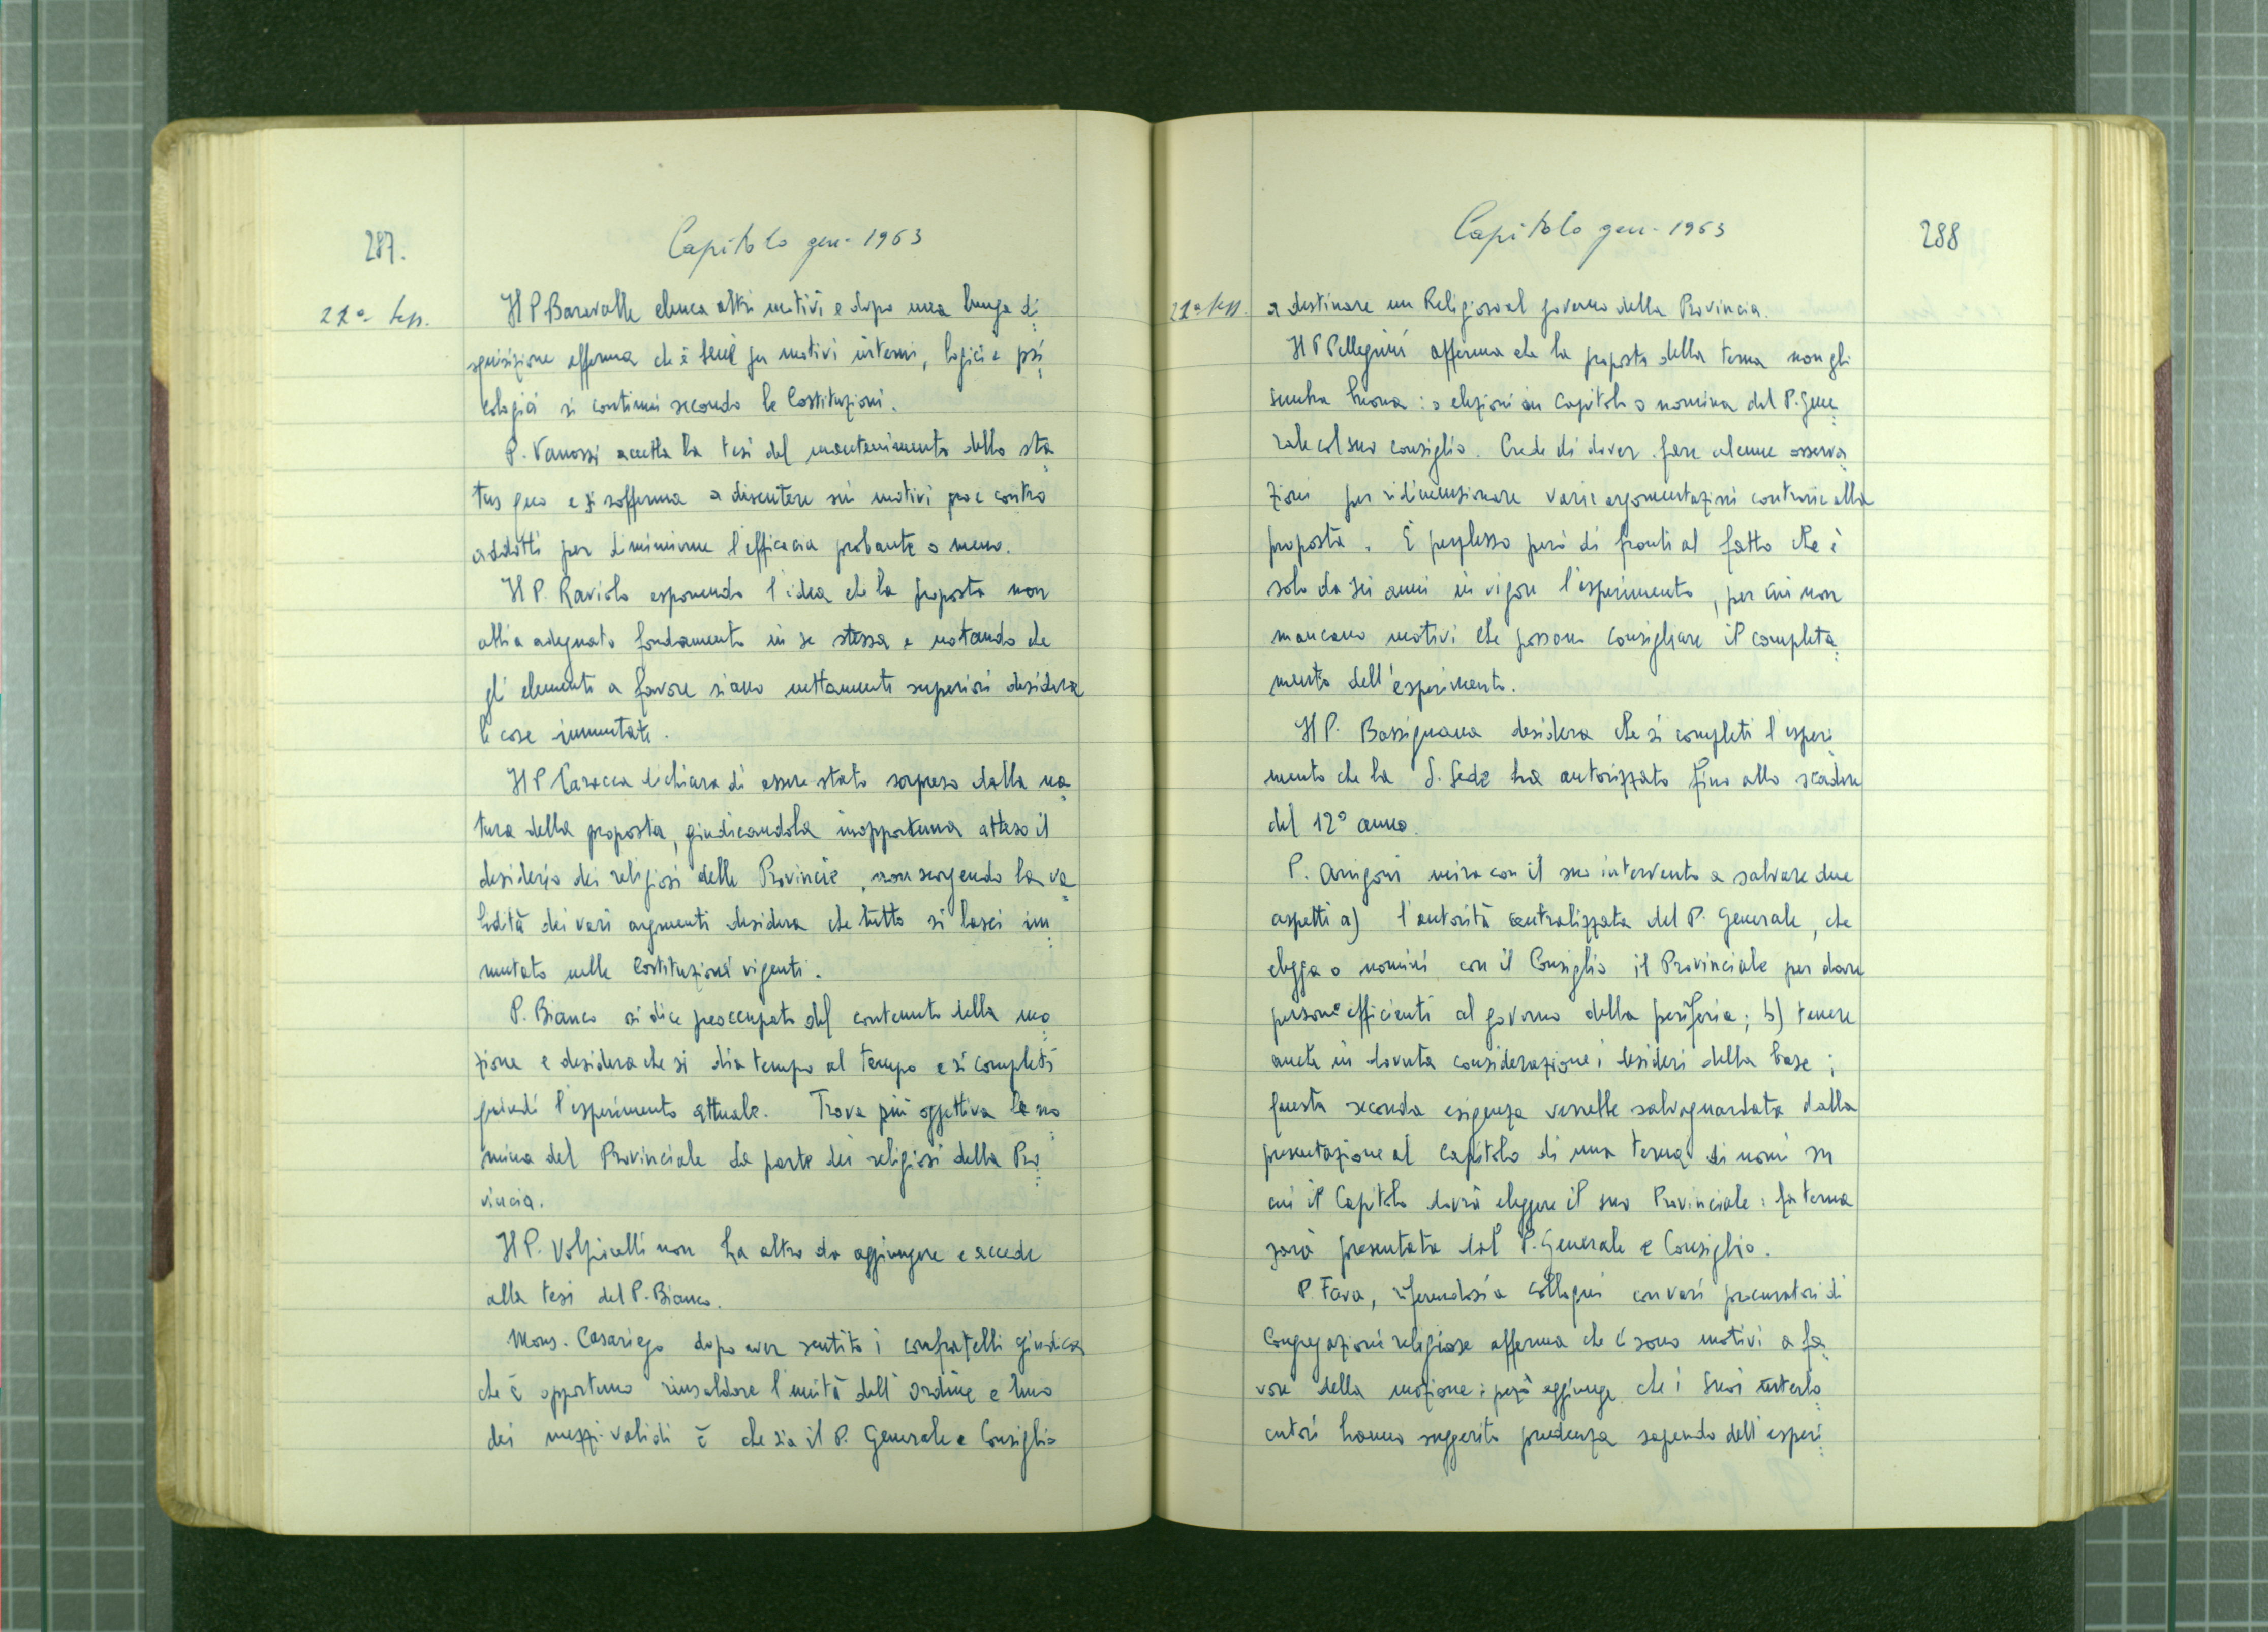 287.
Capitolo gen. 1963
21ª Sess.
Il P. Baravalle elenca altri motivi e dopo una lunga di
squisizione afferma che è bene per motivi interni, logici e psi
cologici si continui secondo le Costituzioni.
P. Vanossi accetta la tesi del mantenimento dello sta
tus quo e si sofferma a discutere sui motivi pro e contro
addotti per diminuirne l'efficacia probante o meno.
Il P. Raviolo esponendo l'idea che la proposta non
abbia adeguato fondamento in se stessa e notando che
gli elementi a favore siano nettamente superiori desidera
le cose immutate.
Il P. Carocca dichiara di essere stato sorpreso dalla na
tura della proposta, giudicandola inopportuna atteso il
desiderio dei religiosi delle Provincie, non scorgendo la va
lidità dei vari argomenti desidera che tutto si lasci im
mutato nelle Costituzioni vigenti.
P. Bianco si dice preoccupato del contenuto della mo
zione e desidera che si dia tempo al tempo e si completi
quindi l'esperimento attuale. Trova più oggettiva la no
mina del Provinciale da parte dei religiosi della Pro
vincia.
Il P. Volpicelli non ha altro da aggiungere e accede
alla tesi del P. Bianco.
Mons. Casariego dopo aver sentito i confratelli giudica
che è opportuno rinsaldare l'unità dell'Ordine e uno
dei mezzi validi è che sia il P. Generale e Consiglio
Capitolo gen. 1963
288
21ª Sess.
a destinare un Religioso al governo della Provincia.
Il P. Pellegrini afferma che la proposta della terna non gli
sembra buona: o elezioni in Capitolo o nomina del P. Gene
rale col suo consiglio. Crede di dover fare alcune osserva
zioni per ridimensionare varie argomentazioni contrarie alla
proposta. È perplesso però di fronte al fatto che è
solo da sei anni in vigore l'esperimento, per cui non
mancano motivi che possono consigliare il completa
mento dell'esperimento.
Il P. Bassignana desidera che si completi l'esperi
mento che la S. Sede ha autorizzato fino allo scadere
del 12º anno.
P. Arrigoni mira con il suo intervento a salvare due
aspetti a) l'autorità centralizzata del P. Generale, che
elegga o nomini con il Consiglio il Provinciale per dare
persone efficienti al governo della periferia; b) tenere
anche in dovuta considerazione i desideri della base;
questa seconda esigenza verrebbe salvaguardata dalla
presentazione al Capitolo di una terna di nomi su
cui il Capitolo dovrà eleggere il suo Provinciale: la terna
sarà presentata dal P. Generale e Consiglio.
P. Fava, riferendosi a colloqui con vari procuratori di
Congregazioni religiose afferma che ci sono motivi a fa
vore della mozione; però aggiunge che i suoi interlo
cutori hanno suggerito prudenza sapendo dell'esperi